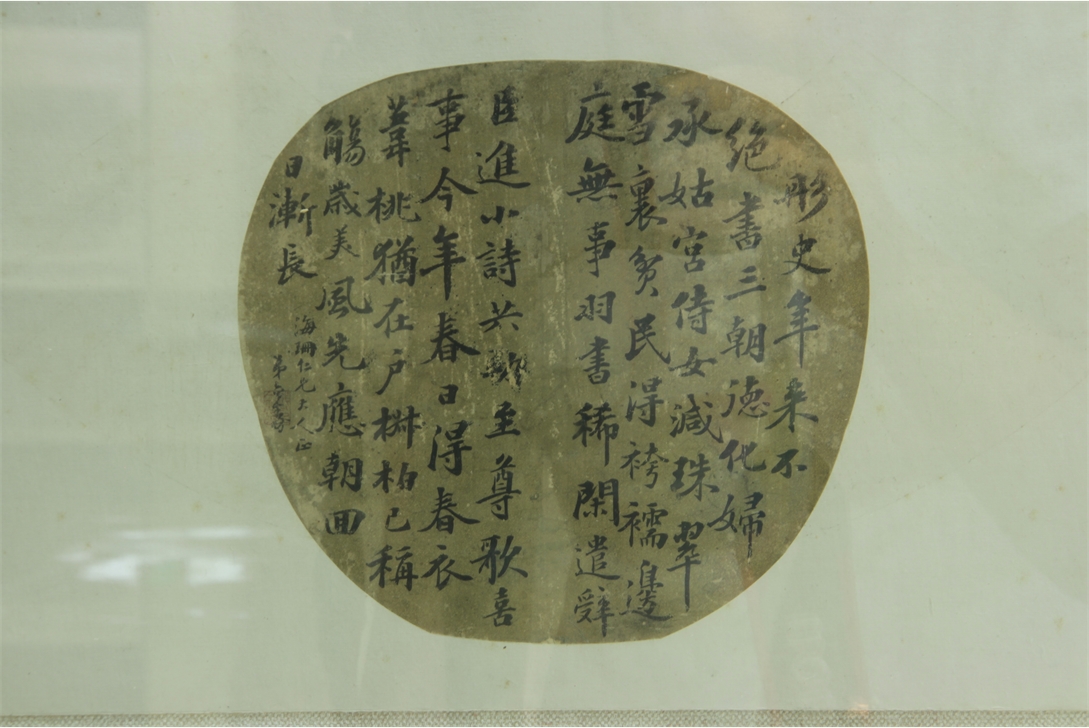 彤史年来不
絕書三朝德化婦
承姑宮侍女減珠翠
雪裏貧民得袴襦邊
庭無事羽書稀閑遣辭
臣進小詩共至尊歌喜
事今年春日得春衣
葦桃猶在户椒柏已稱
觴歲美風先應朝囬
日漸長
海珊仁兄大人正
弟